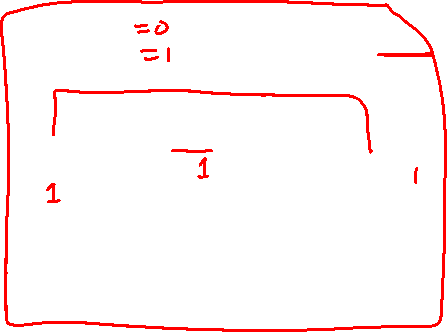 =0
=1
1
1
1